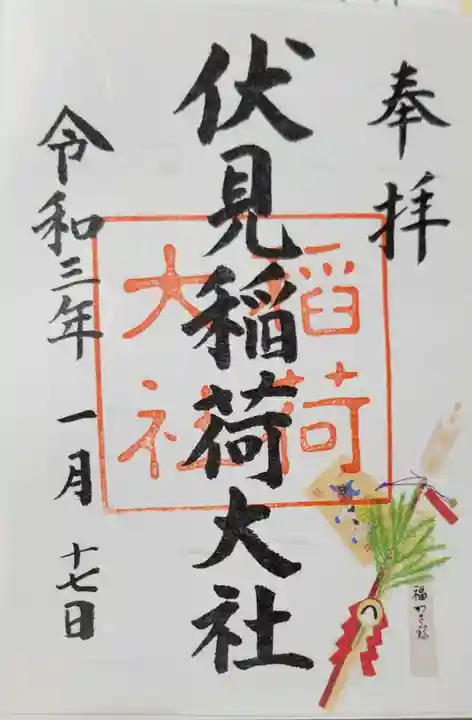 奉拝
伏見稲荷大社
稲荷
大社
令和三年 一月 十七日
福かさね